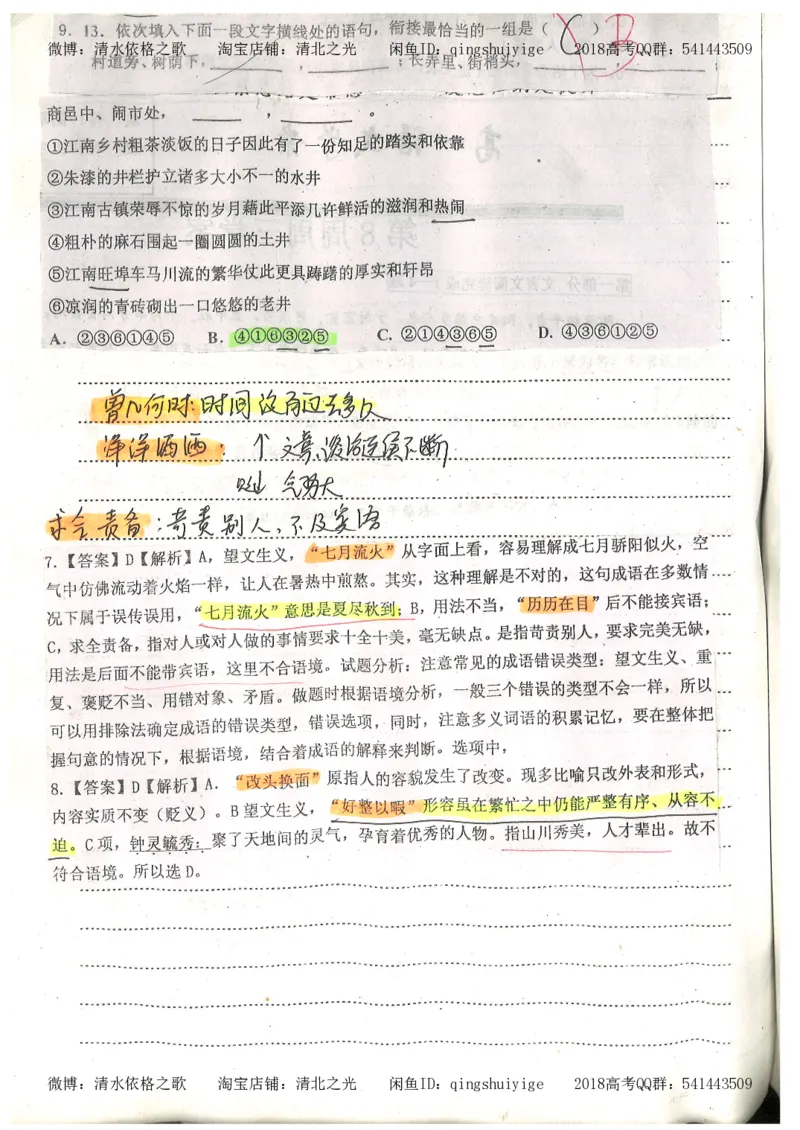 9. 13. 依次填入下面一段文字横线处的语句，衔接最恰当的一组是（ C ） B
微博：清水依格之歌 淘宝店铺：清北之光 闲鱼ID：qingshuiyige 2018高考QQ群：541443509
村道旁、树荫下，______，______；长弄里、街梢头，______，______；
商邑中、闹市处，______，______。
①江南乡村粗茶淡饭的日子因此有了一份知足的踏实和依靠
②朱漆的井栏护立诸多大小不一的水井
③江南古镇荣辱不惊的岁月藉此平添几许鲜活的滋润和热闹
④粗朴的麻石围起一圈圆圆的土井
⑤江南旺埠车马川流的繁华仗此更具踌躇的厚实和轩昂
⑥凉润的青砖砌出一口悠悠的老井
A. ②③⑥①④⑤ B. ④①⑥③②⑤ C. ②①④③⑥⑤ D. ④③⑥①②⑤
曾几何时：时间没有过去多久
洋洋洒洒：个 文章，谈话连续不断
气势大
求全责备：苛责别人，不及宾语
7.【答案】D【解析】A，望文生义，“七月流火”从字面上看，容易理解成七月骄阳似火，空
气中仿佛流动着火焰一样，让人在暑热中煎熬。其实，这种理解是不对的，这句成语在多数情
况下属于误传误用，“七月流火”意思是夏尽秋到；B，用法不当，“历历在目”后不能接宾语；
C，求全责备，指对人或对人做的事情要求十全十美，毫无缺点。是指苛责别人，要求完美无缺，
用法是后面不能带宾语，这里不合语境。试题分析：注意常见的成语错误类型：望文生义、重
复、褒贬不当、用错对象、矛盾。做题时根据语境分析，一般三个错误的类型不会一样，所以
可以用排除法确定成语的错误类型，错误选项，同时，注意多义词语的积累记忆，要在整体把
握句意的情况下，根据语境，结合着成语的解释来判断。选项中，
8.【答案】D【解析】A．“改头换面”原指人的容貌发生了改变。现多比喻只改外表和形式，
内容实质不变（贬义）。B 望文生义，“好整以暇”形容虽在繁忙之中仍能严整有序、从容不
迫。C 项，钟灵毓秀：聚了天地间的灵气，孕育着优秀的人物。指山川秀美，人才辈出。故不
符合语境。所以选 D。
微博：清水依格之歌 淘宝店铺：清北之光 闲鱼ID：qingshuiyige 2018高考QQ群：541443509